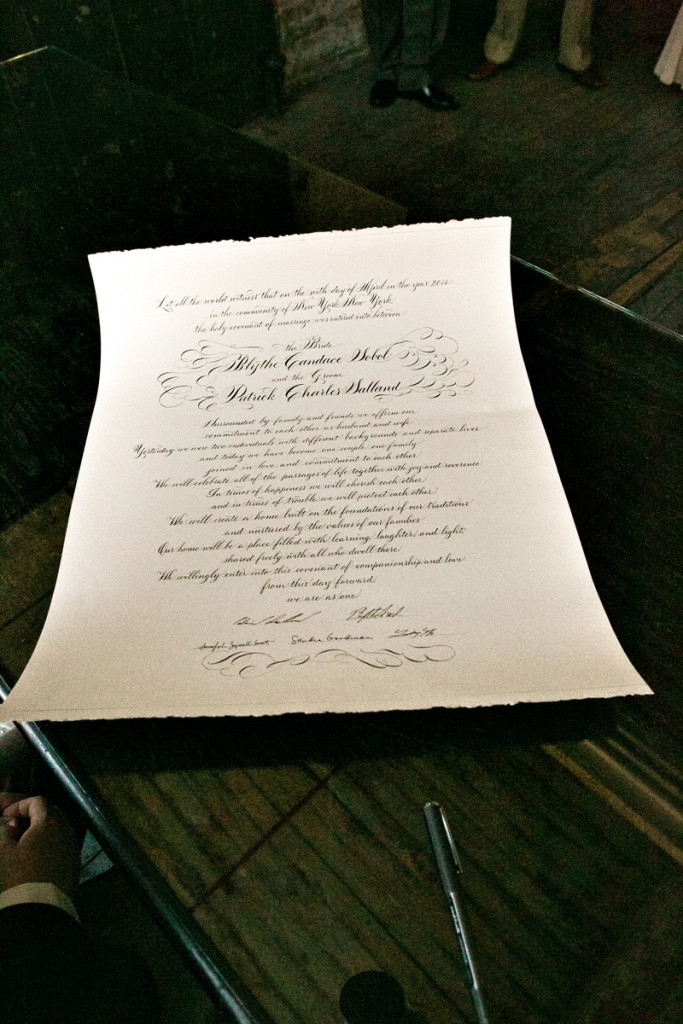 Let all the world witness that on the ninth day of April in the year
in the community of New York, New York
the holy covenant of marriage was entered into between
the Bride
Blythe Candace Sobol
and the Groom
Patrick Charles Salland
Surrounded by family and friends we affirm our
commitment to each other as husband and wife
Yesterday we were two individuals with different backgrounds and separate lives
and today we have become one couple, one family
joined in love and commitment to each other
We will celebrate all of the passages of life together with joy and reverence
In times of happiness we will cherish each other
and in times of trouble we will protect each other
We will create a home built on the foundations of our traditions
and nurtured by the values of our families
Our home will be a place filled with learning, laughter, and light
shared freely with all who dwell there
We willingly enter into this covenant of companionship and love
from this day forward
we are as one
Goodman